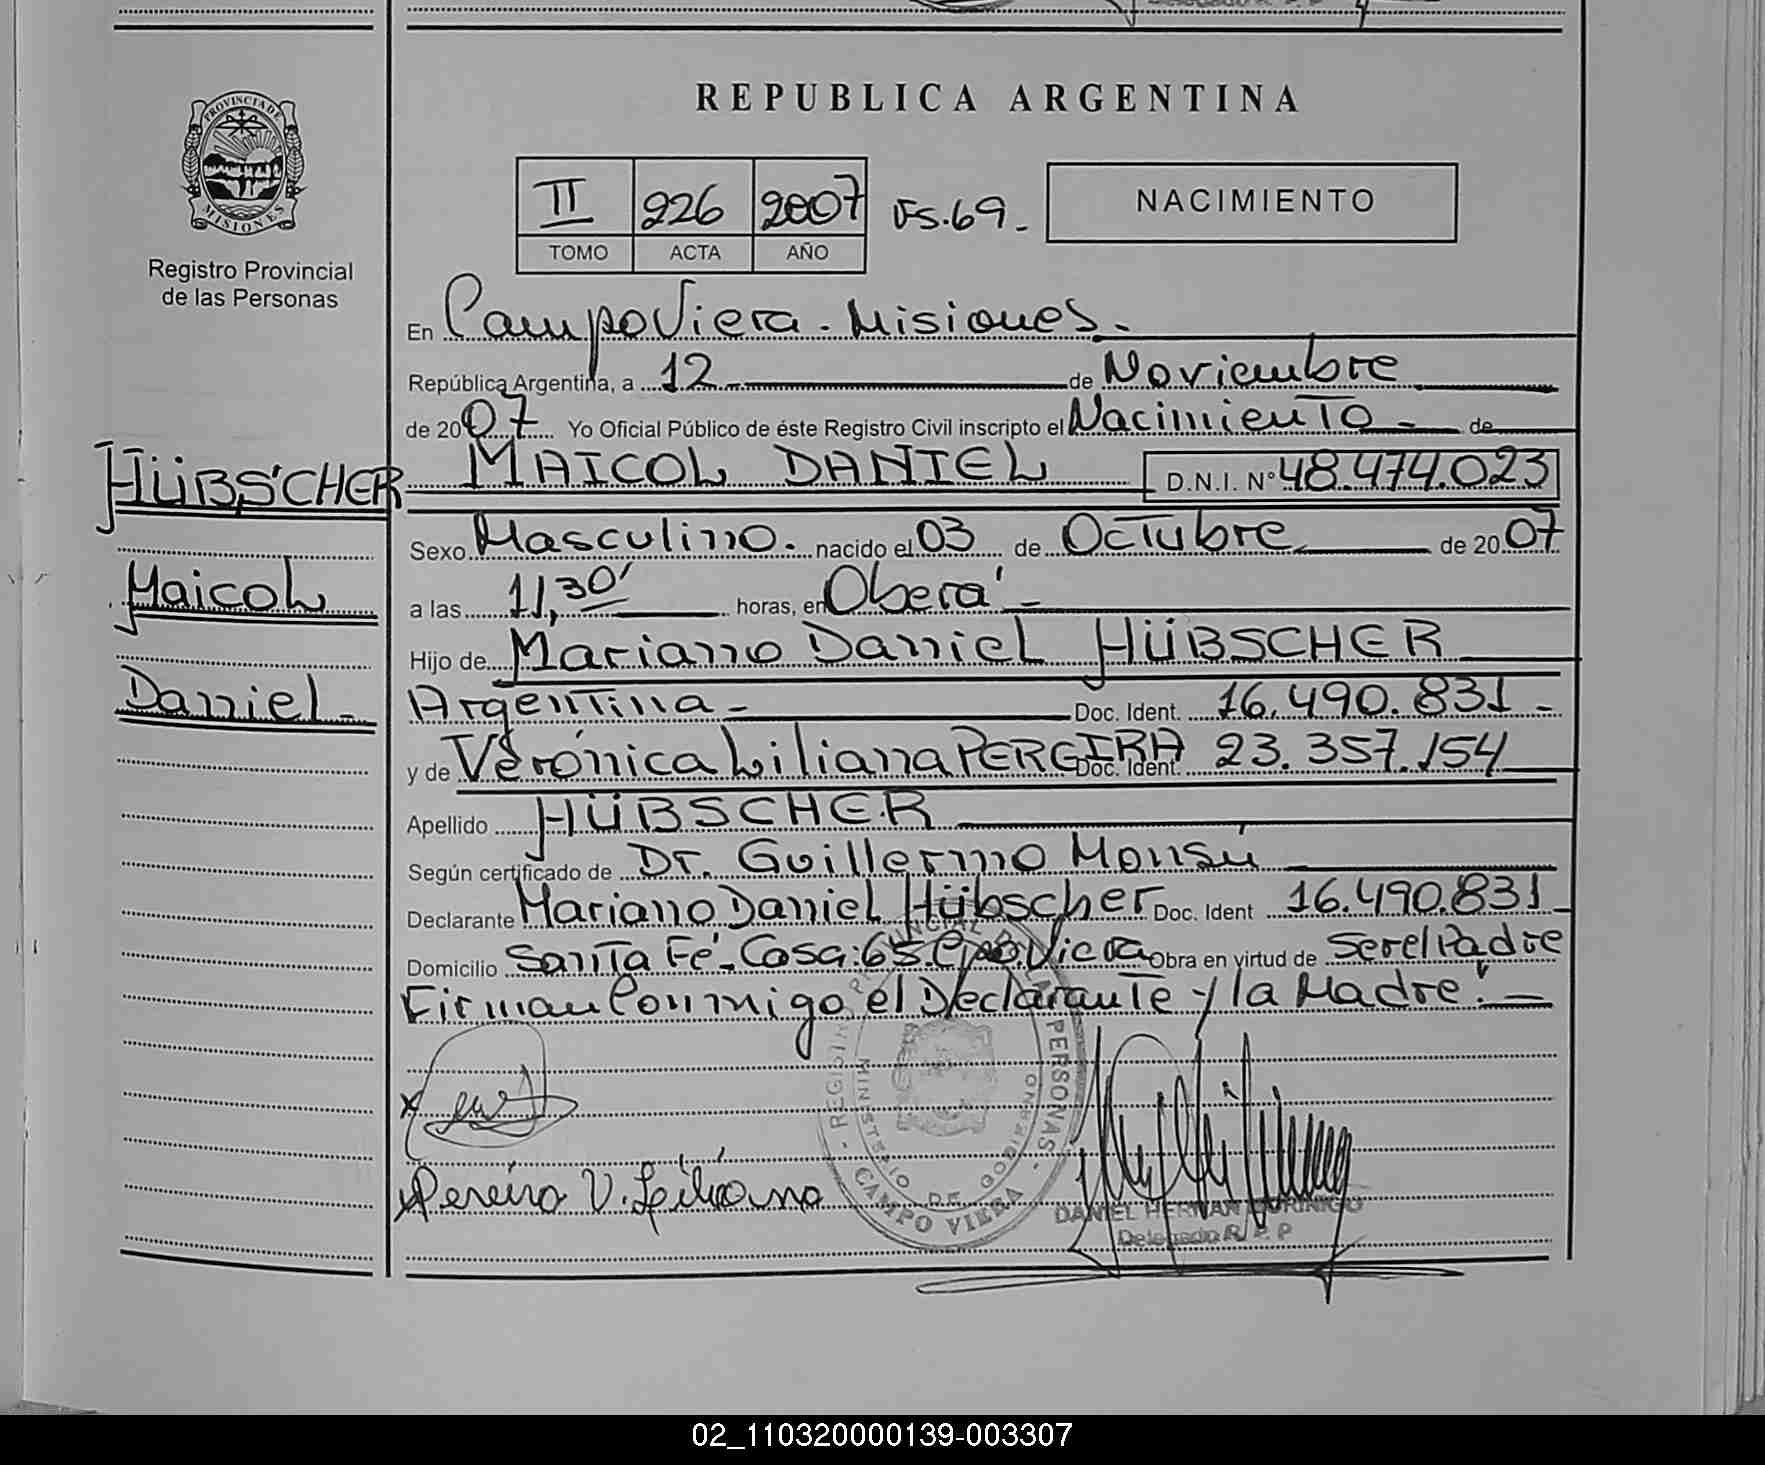 REPUBLICA ARGENTINA
PROVINCIA DE MISIONES
Registro Provincial
de las Personas
II 226 2007 FS.69.-
TOMO ACTA AÑO
NACIMIENTO
En Campo Viera - Misiones.-
República Argentina, a 12.- de Noviembre
de 2007 Yo Oficial Público de éste Registro Civil inscripto el Nacimiento - de
HÜBSCHER
MAICOL DANIEL D.N.I. N° 48.474.023
Sexo Masculino. nacido el 03 de Octubre de 2007
Maicol
a las 11,30' horas, en Oberá -
Hijo de Mariano Daniel HÜBSCHER
Daniel -
Argentina - Doc. Ident. 16.490.831 -
y de Verónica Liliana PEREIRA Doc. Ident. 23.357.154
Apellido HÜBSCHER
Según certificado de Dr. Guillermo Monsú
Declarante Mariano Daniel Hübscher Doc. Ident 16.490.831
Domicilio Santa Fé - Casa: 65. Cpo. Viera Obra en virtud de Ser el Padre
Firman Conmigo el Declarante y la Madre. -
PERSONAS
MINISTERIO DE GOBIERNO
CAMPO VIERA
x
x Pereira V. Liliana
DANIEL HERNAN DORINIGO
Delegado R. P. P
02_110320000139-003307